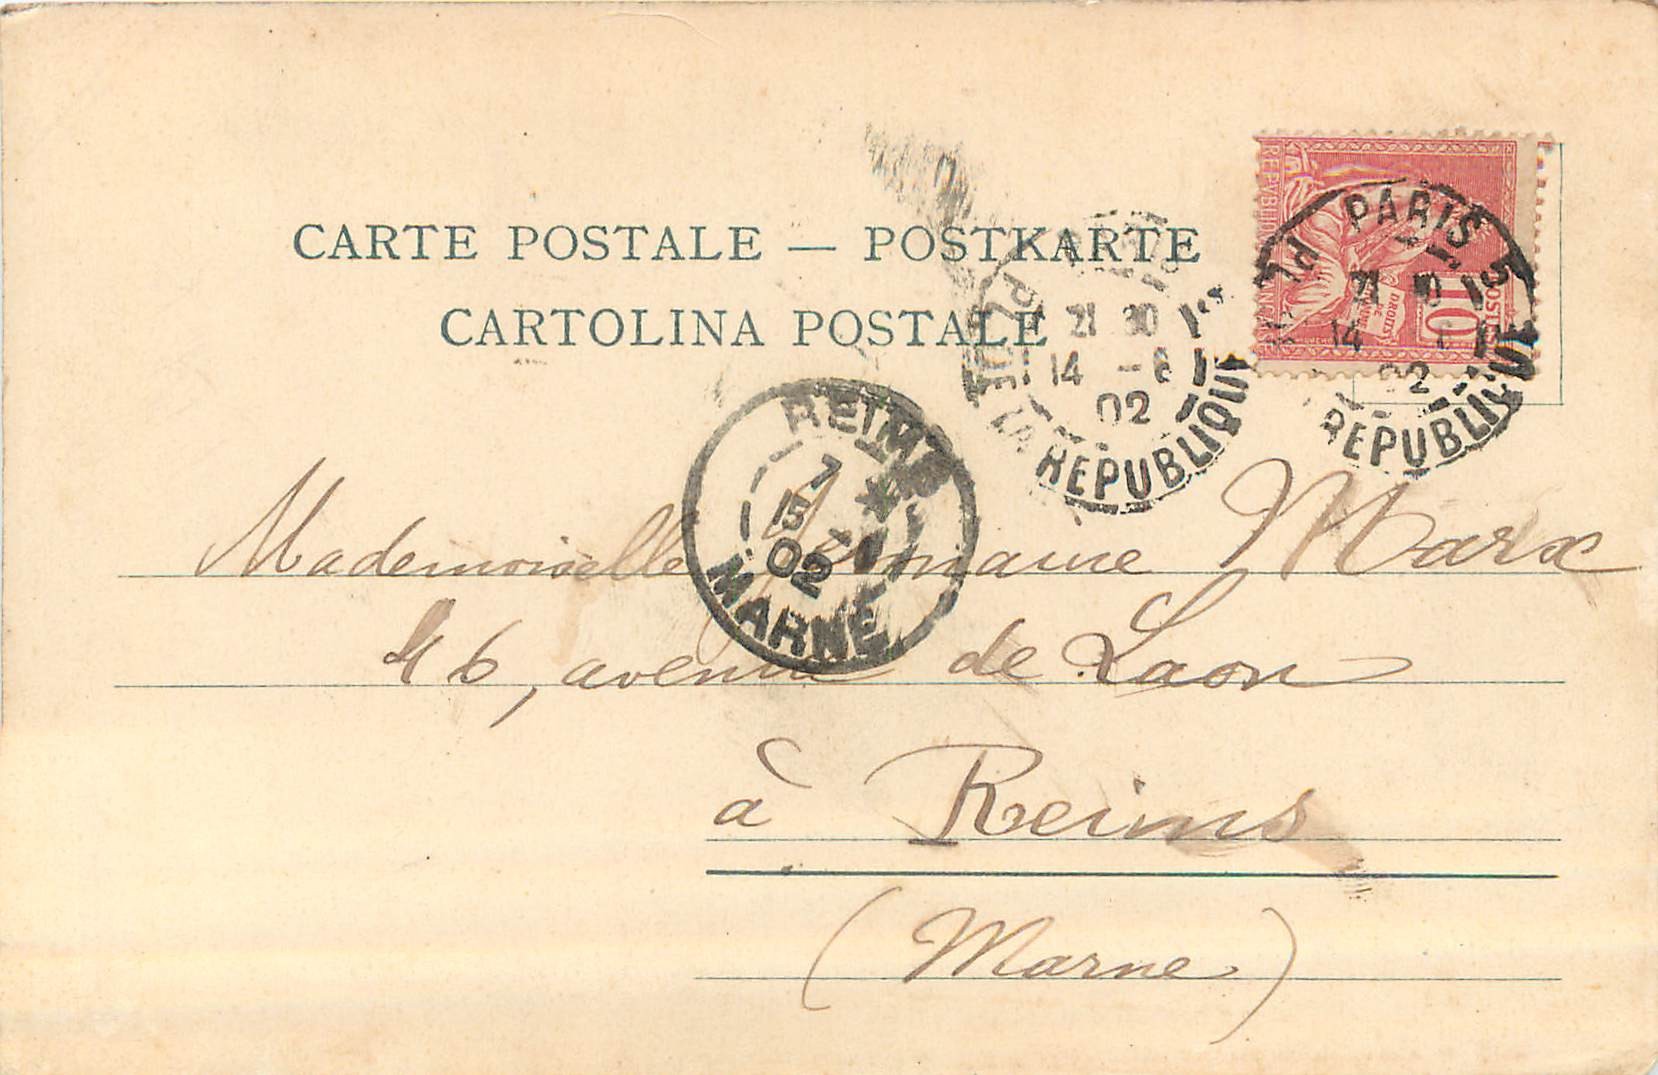 CARTE POSTALE — POSTKARTE
CARTOLINA POSTALE
REPUBLIQUE FRANCAISE
POSTES
10
DROITS DE L'HOMME
PARIS 5
21 30
14 - 6
02
PL. DE LA REPUBLIQUE
PARIS
21 30
14
02
PL
REPUBLIQUE
REIMS
7 *
15 -
02
MARNE
Mademoiselle Germaine Marx
46, avenue de Laon
à Reims
(Marne)